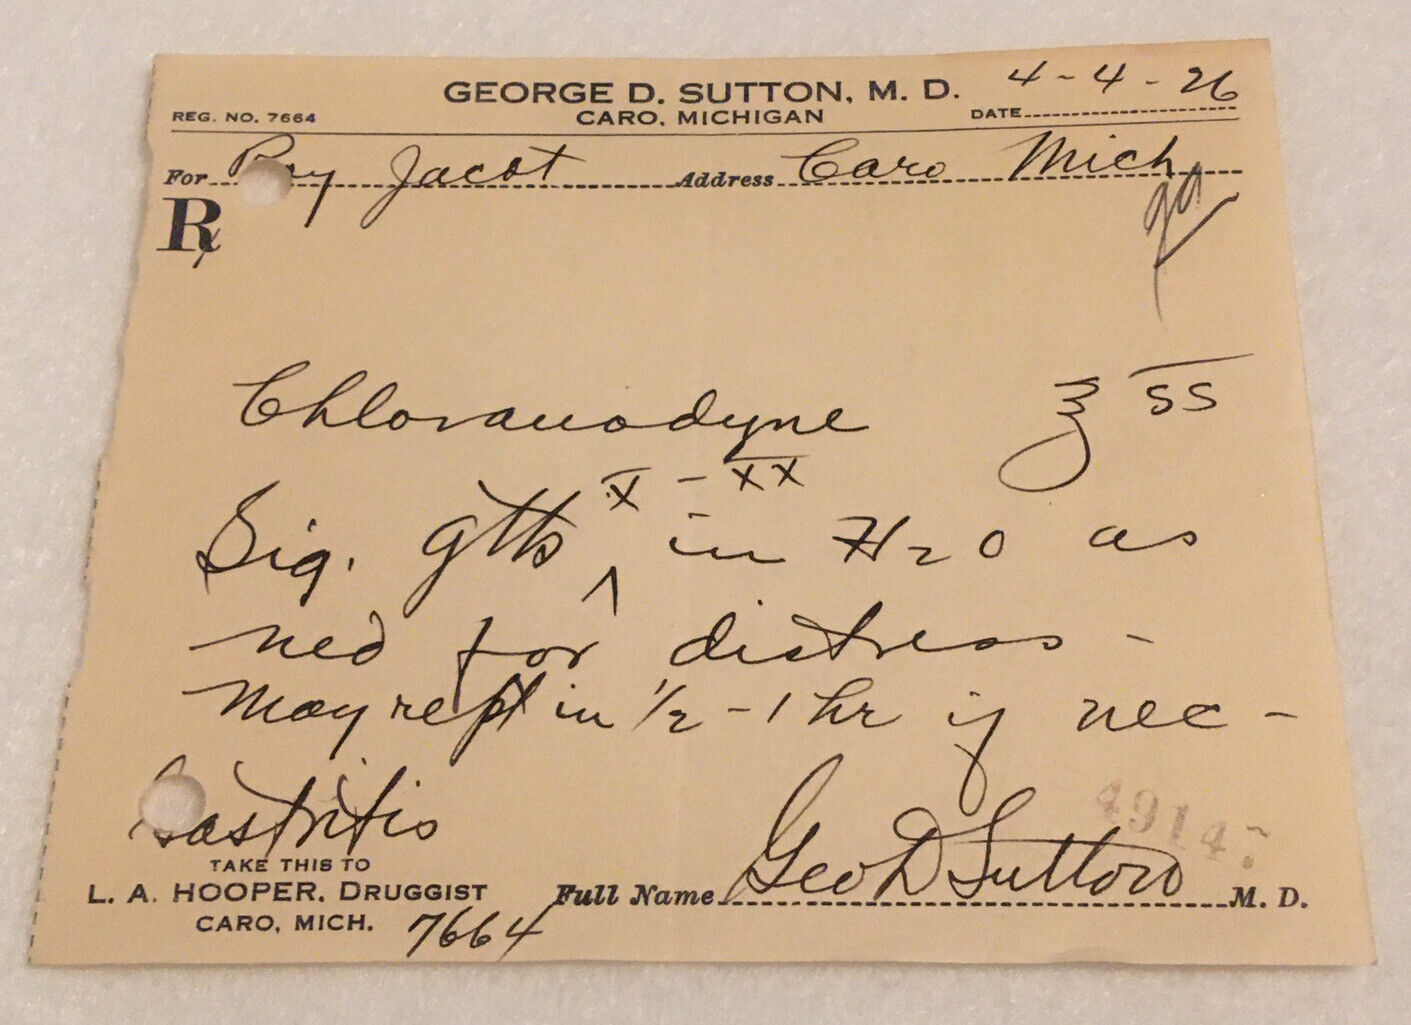 GEORGE D. SUTTON, M. D.
4-4-26
REG. NO. 7664 CARO, MICHIGAN DATE
For Ray Jacot Address Caro Mich
Rx
Chloranodyne ℥ ss
x - xx
Sig. gtts ^ in H2O as
ned for distress -
May rept in 1/2 - 1 hr if nec -
Gastritis
TAKE THIS TO
L. A. HOOPER, DRUGGIST
CARO, MICH.
7664
Full Name Geo D Sutton M. D.
4914